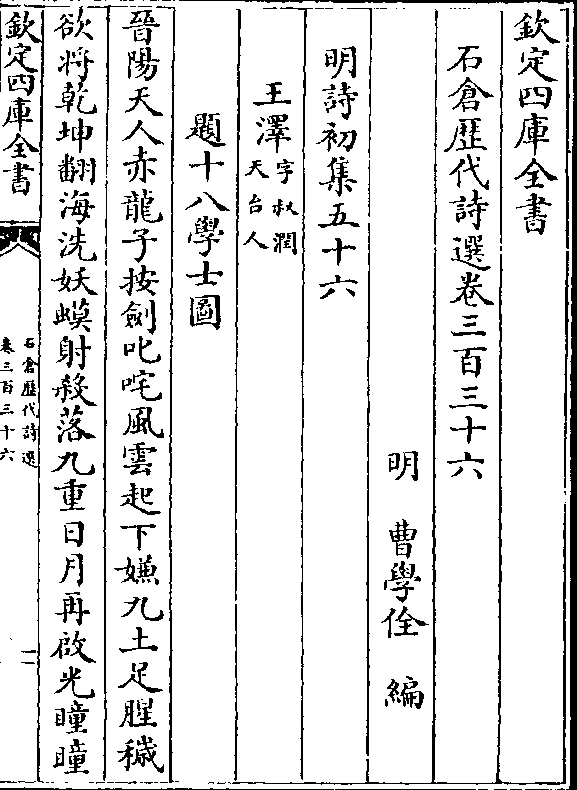 欽定四庫全書
石倉歴代詩選卷三百三十六
明 曹學佺 編
明詩初集五十六
王澤字叔潤
天台人
題十八學士圖
晉陽天人赤龍子按劍叱咤風雲起下嫌九土足腥穢
欲將乾坤翻海洗妖蟆射殺落九重日月再啟光曈曈
欽定四庫全書
石倉歴代詩選
卷三百三十六
一